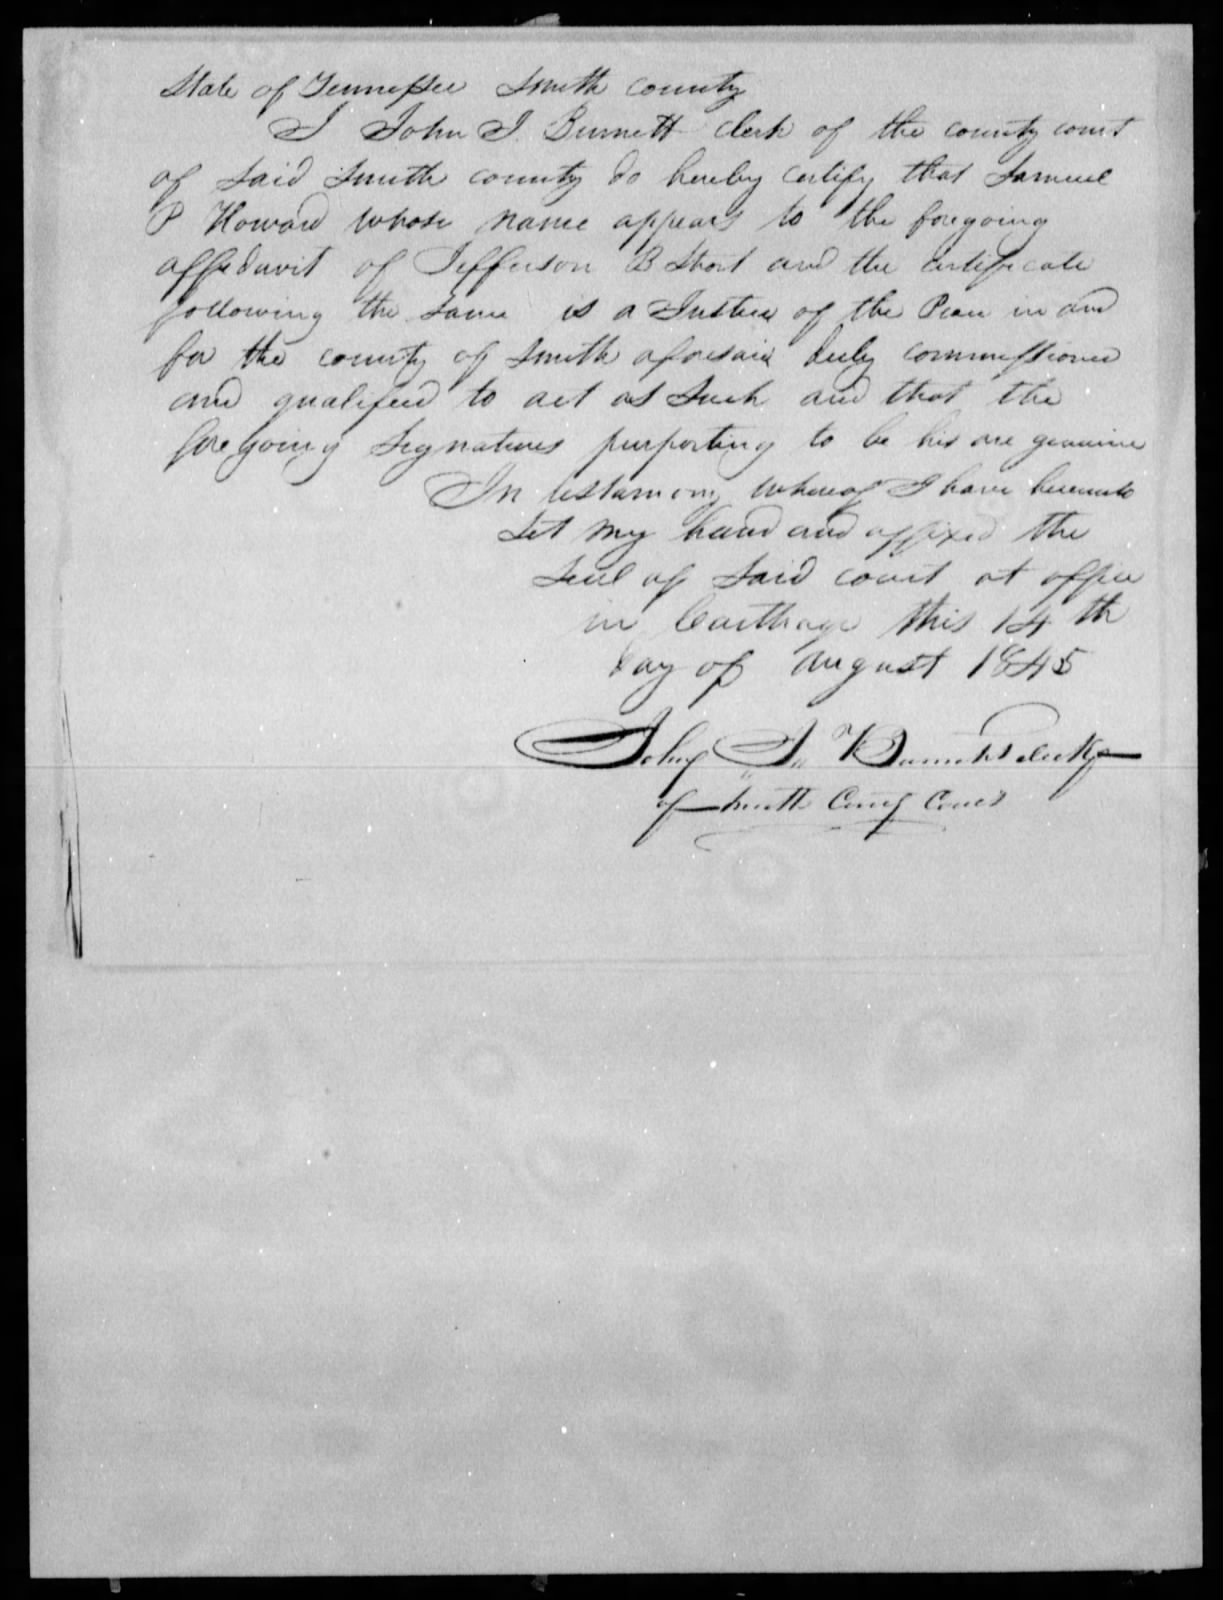 State of Tennessee Smith county
I John J. Burnett clerk of the county court
of said Smith county do hereby certify that Samuel
P Howard whose name appears to the foregoing
affidavit of Jefferson B Short and the certificate
following the same is a Justice of the Peace in and
for the county of Smith aforesaid duly commissioned
and qualified to act as such and that the
foregoing signatures purporting to be his are genuine
In testamony whereof I have hereunto
set my hand and affixed the
seal of said court at office
in Carthage this 14th
day of august 1845
John J. Burnett clerk
of Smith County Court